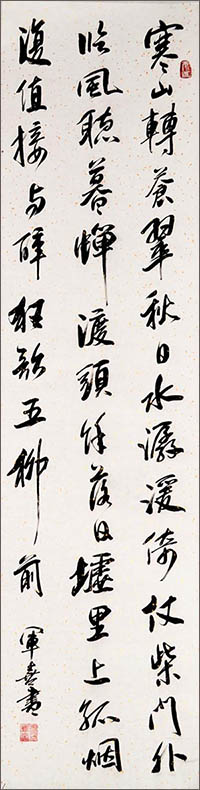 寒山轉蒼翠秋日水潺湲倚仗柴門外
临風聽暮蟬渡頭余落日墟里上孤烟
復值接与醉狂歌五柳前
軍喜書